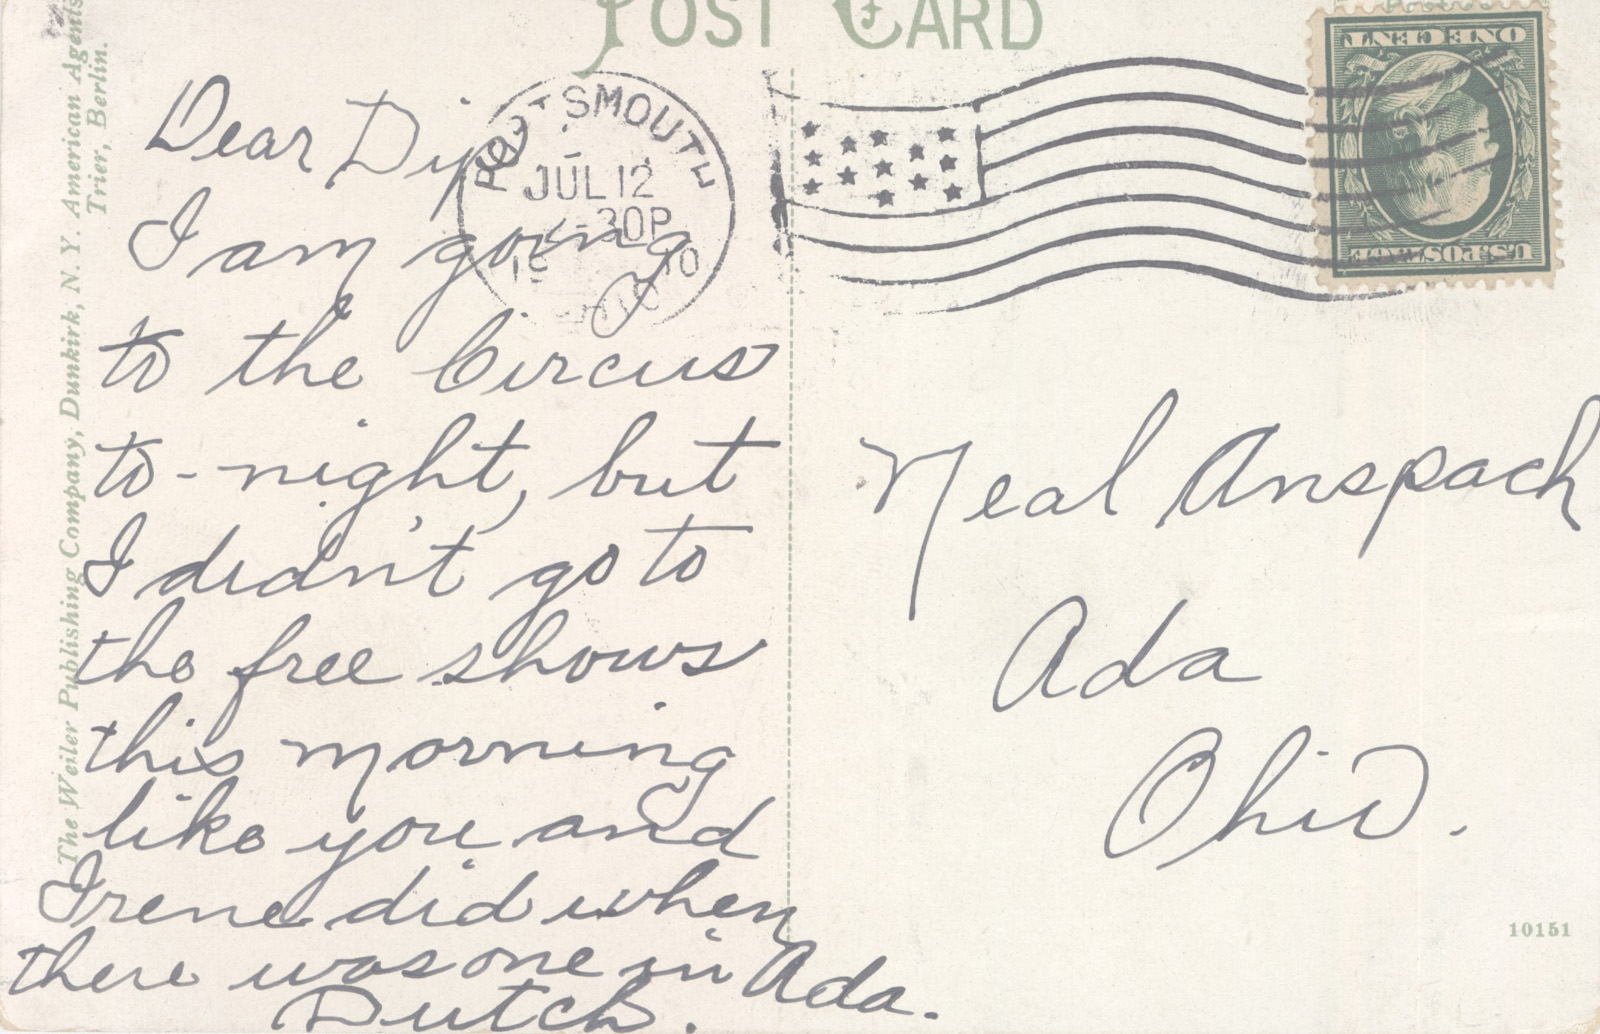 POST CARD
The Weiler Publishing Company, Dunkirk, N. Y. American Agents
Trier, Berlin.
PORTSMOUTH
JUL 12
-30P
19 10
ONE CENT
U.S. POSTAGE
Dear
I am going
to the Circus
to-night, but
I didn't go to
the free shows
this morning
like you and
Irene did when
there was one in Ada.
Dutch.
Neal Anspach
Ada
Ohio.
10151